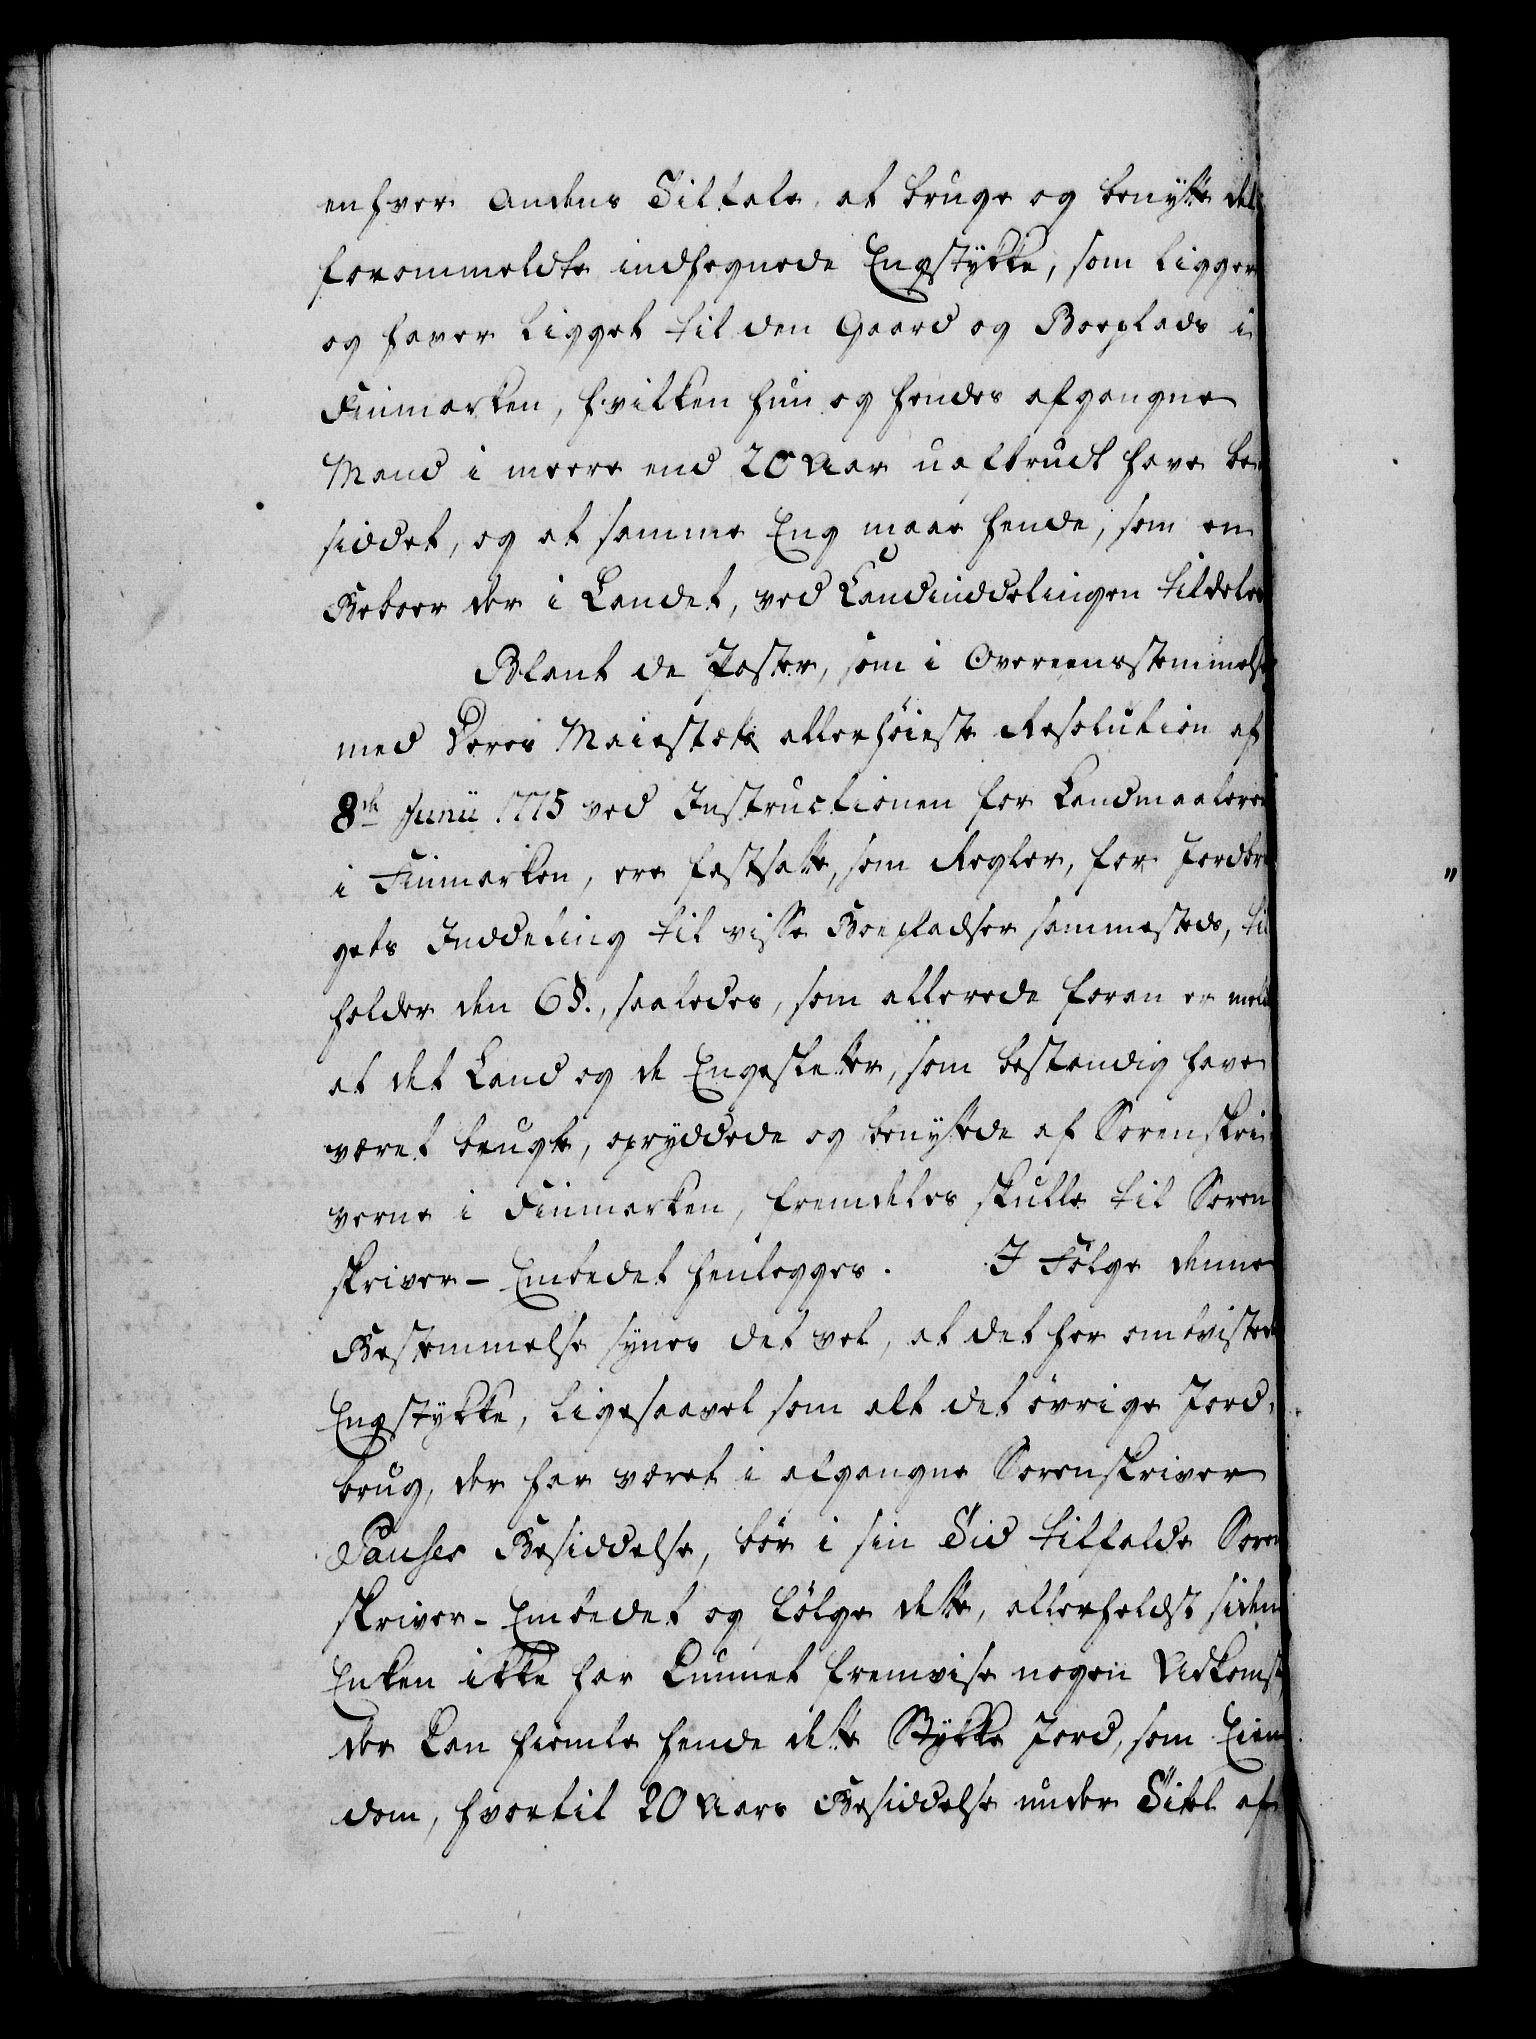 enhver Andens Tiltale at bruge og benytte det
forommeldte indhegnede Engstykke, som ligger
og haver ligget til den Gaard og Boeplads i
Finmarken, hvilken hun og hendes afgangne
Mand i meere end 20 Aar uafbrudt have be
siddet, og at samme Eng maae hende, som en
Beboer der i Landet, ved Landinddelingen tildeles
Blant de Poster, som i Overeensstemmelse
med Deres Maiestæts allerhöieste Resolution af
8de Junii 1775 ved Instructionen for Landmaaleren
i Finmarken, ere fastsatte, som Regler, for Jordbru
gets Inddeling til visse Boepladser sammesteds, til
holder den 6 §., saaledes, som allerede foran er meldt
at det Land og de Engesletter, som bestandig have
været brugte, opryddede og benyttede af Sorenskri
verne i Finmarken, fremdeles skulle til Soren
skriver-Embedet henlegges. I Fölge denne
Bestemmelse synes det vel, at det her omtvistede
Engstykke, ligesaavel som alt det övrige Jord-
brug, der har været i afgangne Sorenskriver
Pauses Besiddelse, bör i sin Tid tilfalde Soren
skriver-Embedet og fölge dette, allerhelst siden
Enken ikke har kunnet fremvise nogen Adkomst,
der kan hiemle hende dette Stykke Jord, som Eien
dom, hvortil 20 Aars Besiddelse under Titel af